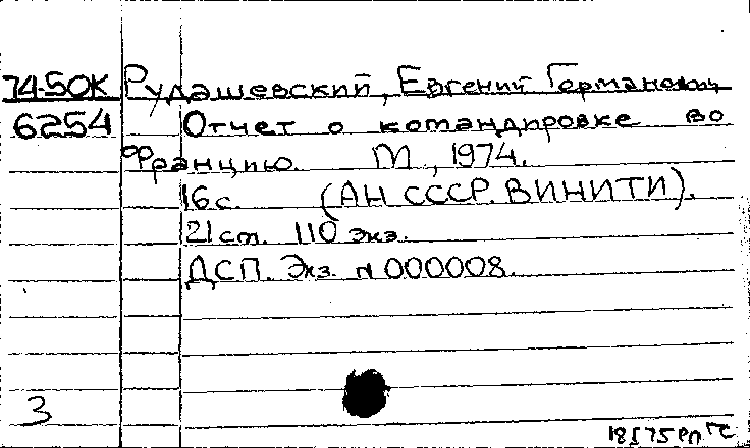 74-50К Рудашевский, Евгений Германович
6254 Отчет о командировке во
Францию. М., 1974.
16 с. (АН СССР. ВИНИТИ).
21 см. 110 экз.
ДСП. Экз. N 000008.
3
18 I 75